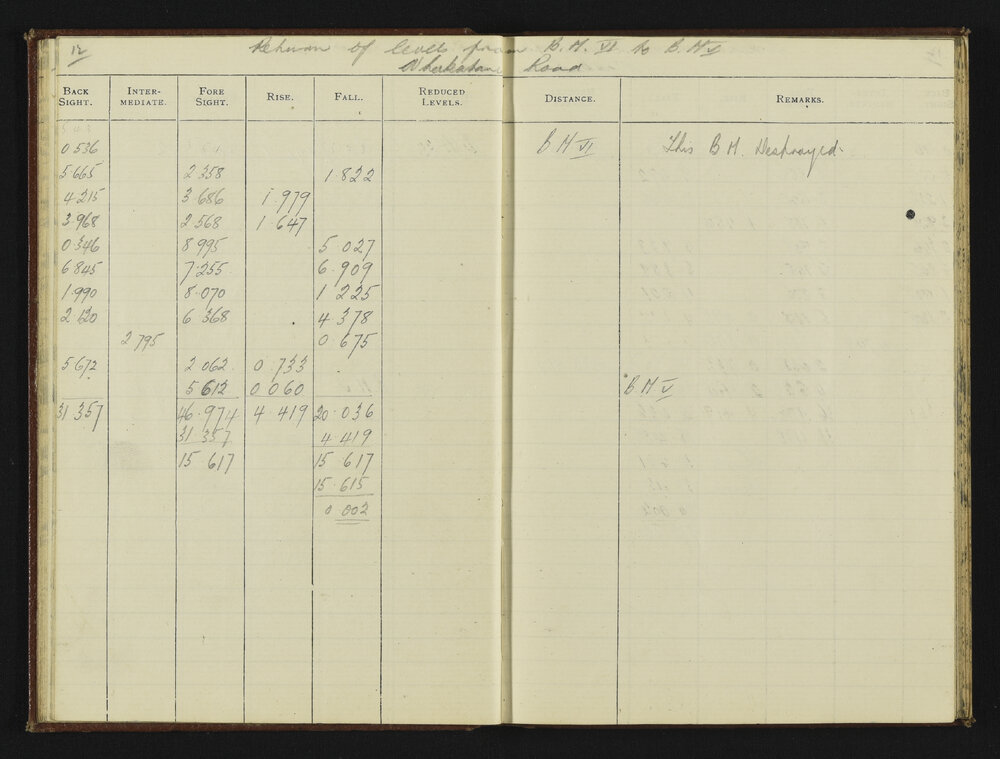 12 Return of levels from B.M. VI to B.M V
Whakatane Road
BACK SIGHT. INTER-MEDIATE. FORE SIGHT. RISE. FALL. REDUCED LEVELS. DISTANCE. REMARKS.
0 536 B M VI This B M. Destroyed.
5 665 2 358 1 822
4 215 3 686 1.979
3 968 2 568 1 647
0 346 8 995 5 027
6 845 7.255 6.909
1.990 8.070 1 225
2 120 6 368 4 378
2 795 0 675
5 672 2 062 0.733
5 612 0 060 B M V
31 357 46.974 4.419 20.036
31 357 4 419
15 617 15 617
15.615
0 002